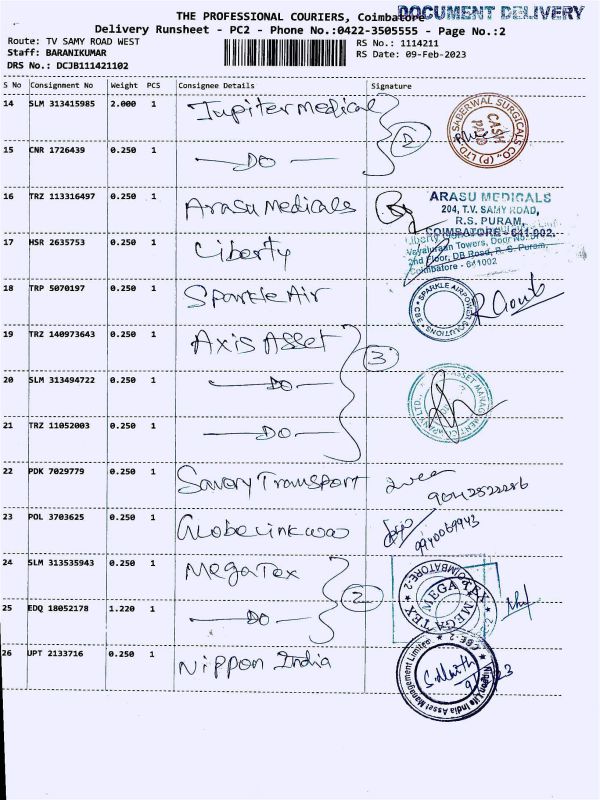 DOCUMENT DELIVERY
THE PROFESSIONAL COURIERS, Coimbatore
Delivery Runsheet - PC2 - Phone No.:0422-3505555 - Page No.:2
Route: TV SAMY ROAD WEST
Staff: BARANIKUMAR
DRS No.: DCJB111421102
RS No.: 1114211
RS Date: 09-Feb-2023
S No Consignment No Weight PCS Consignee Details Signature
14 SLM 313415985 2.000 1 Jupiter medical 2
SABERWAL SURGICALS CO., (P) LTD
CASH PAID
15 CNR 1726439 0.250 1 DO
16 TRZ 113316497 0.250 1 Arasu Medicals
ARASU MEDICALS
204, T.V. SAMY ROAD,
R.S. PURAM,
COIMBATORE - 641 002.
17 HSR 2635753 0.250 1 Liberty
Liberty
Vayaluraan Towers, Door No.
2nd Floor, DB Road, R. S. Puram,
Coimbatore - 641002
18 TRP 5070197 0.250 1 Sparkle Air
SPARKLE AIRPOWER SOLUTIONS CBE
19 TRZ 140973643 0.250 1 Axis Asset 3
20 SLM 313494722 0.250 1 DO
ASSET MANAGEMENT
21 TRZ 11052003 0.250 1 DO
22 PDK 7029779 0.250 1 Savory Transport
23 POL 3703625 0.250 1 Globe Link
9940069943
24 SLM 313535943 0.250 1 Mega Tex 2
MEGA TEX
COIMBATORE-2
25 EDQ 18052178 1.220 1 DO
26 UPT 2133716 0.250 1 Nippon India
Nippon Life India Asset Management Limited
CBE-2